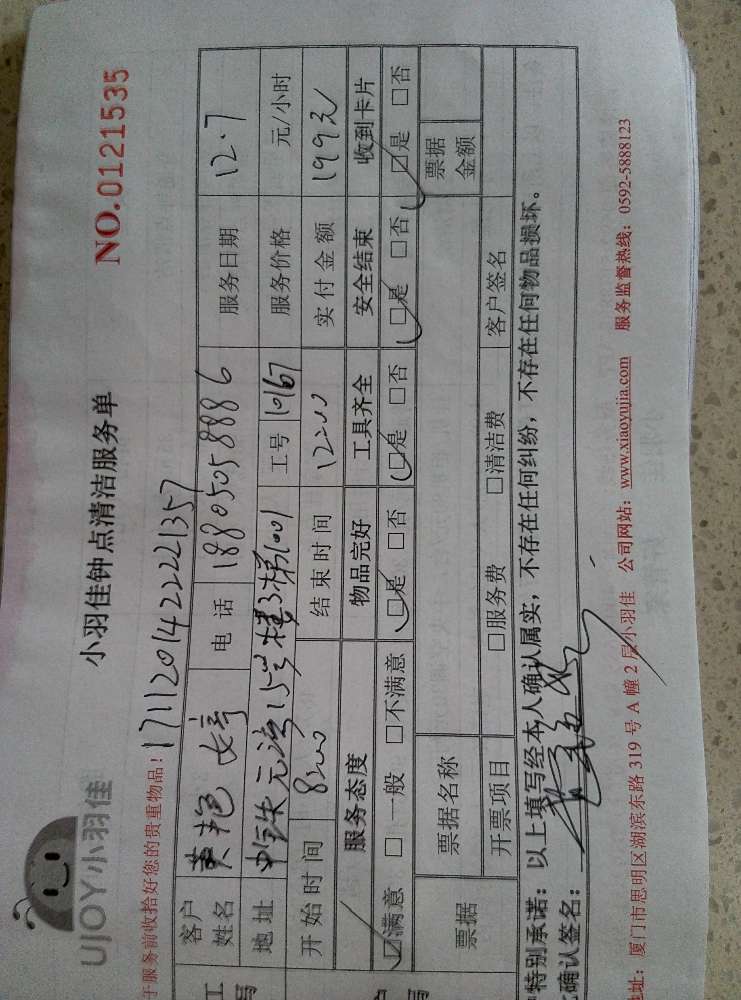 UJOY小羽佳
小羽佳钟点清洁服务单
NO.0121535
于服务前收拾好您的贵重物品！
1711201422221357
客户姓名 黄艳婷 电话 18805058886 服务日期 12.7
地址 中铁元湾15号楼3梯1001 工号 10167 服务价格 元/小时
开始时间 8:00 结束时间 12:00 实付金额 199元
服务态度 物品完好 工具齐全 安全结束 收到卡片
☑满意 □一般 □不满意 ☑是 □否 ☑是 □否 ☑是 □否 ☑是 □否
票据 票据名称 票据金额
开票项目 □服务费 □清洁费 客户签名
特别承诺：以上填写经本人确认属实，不存在任何纠纷，不存在任何物品损坏。
确认签名：
地址：厦门市思明区湖滨东路 319 号 A 幢 2 层小羽佳 公司网站：www.xiaoyujia.com 服务监督热线：0592-5888123